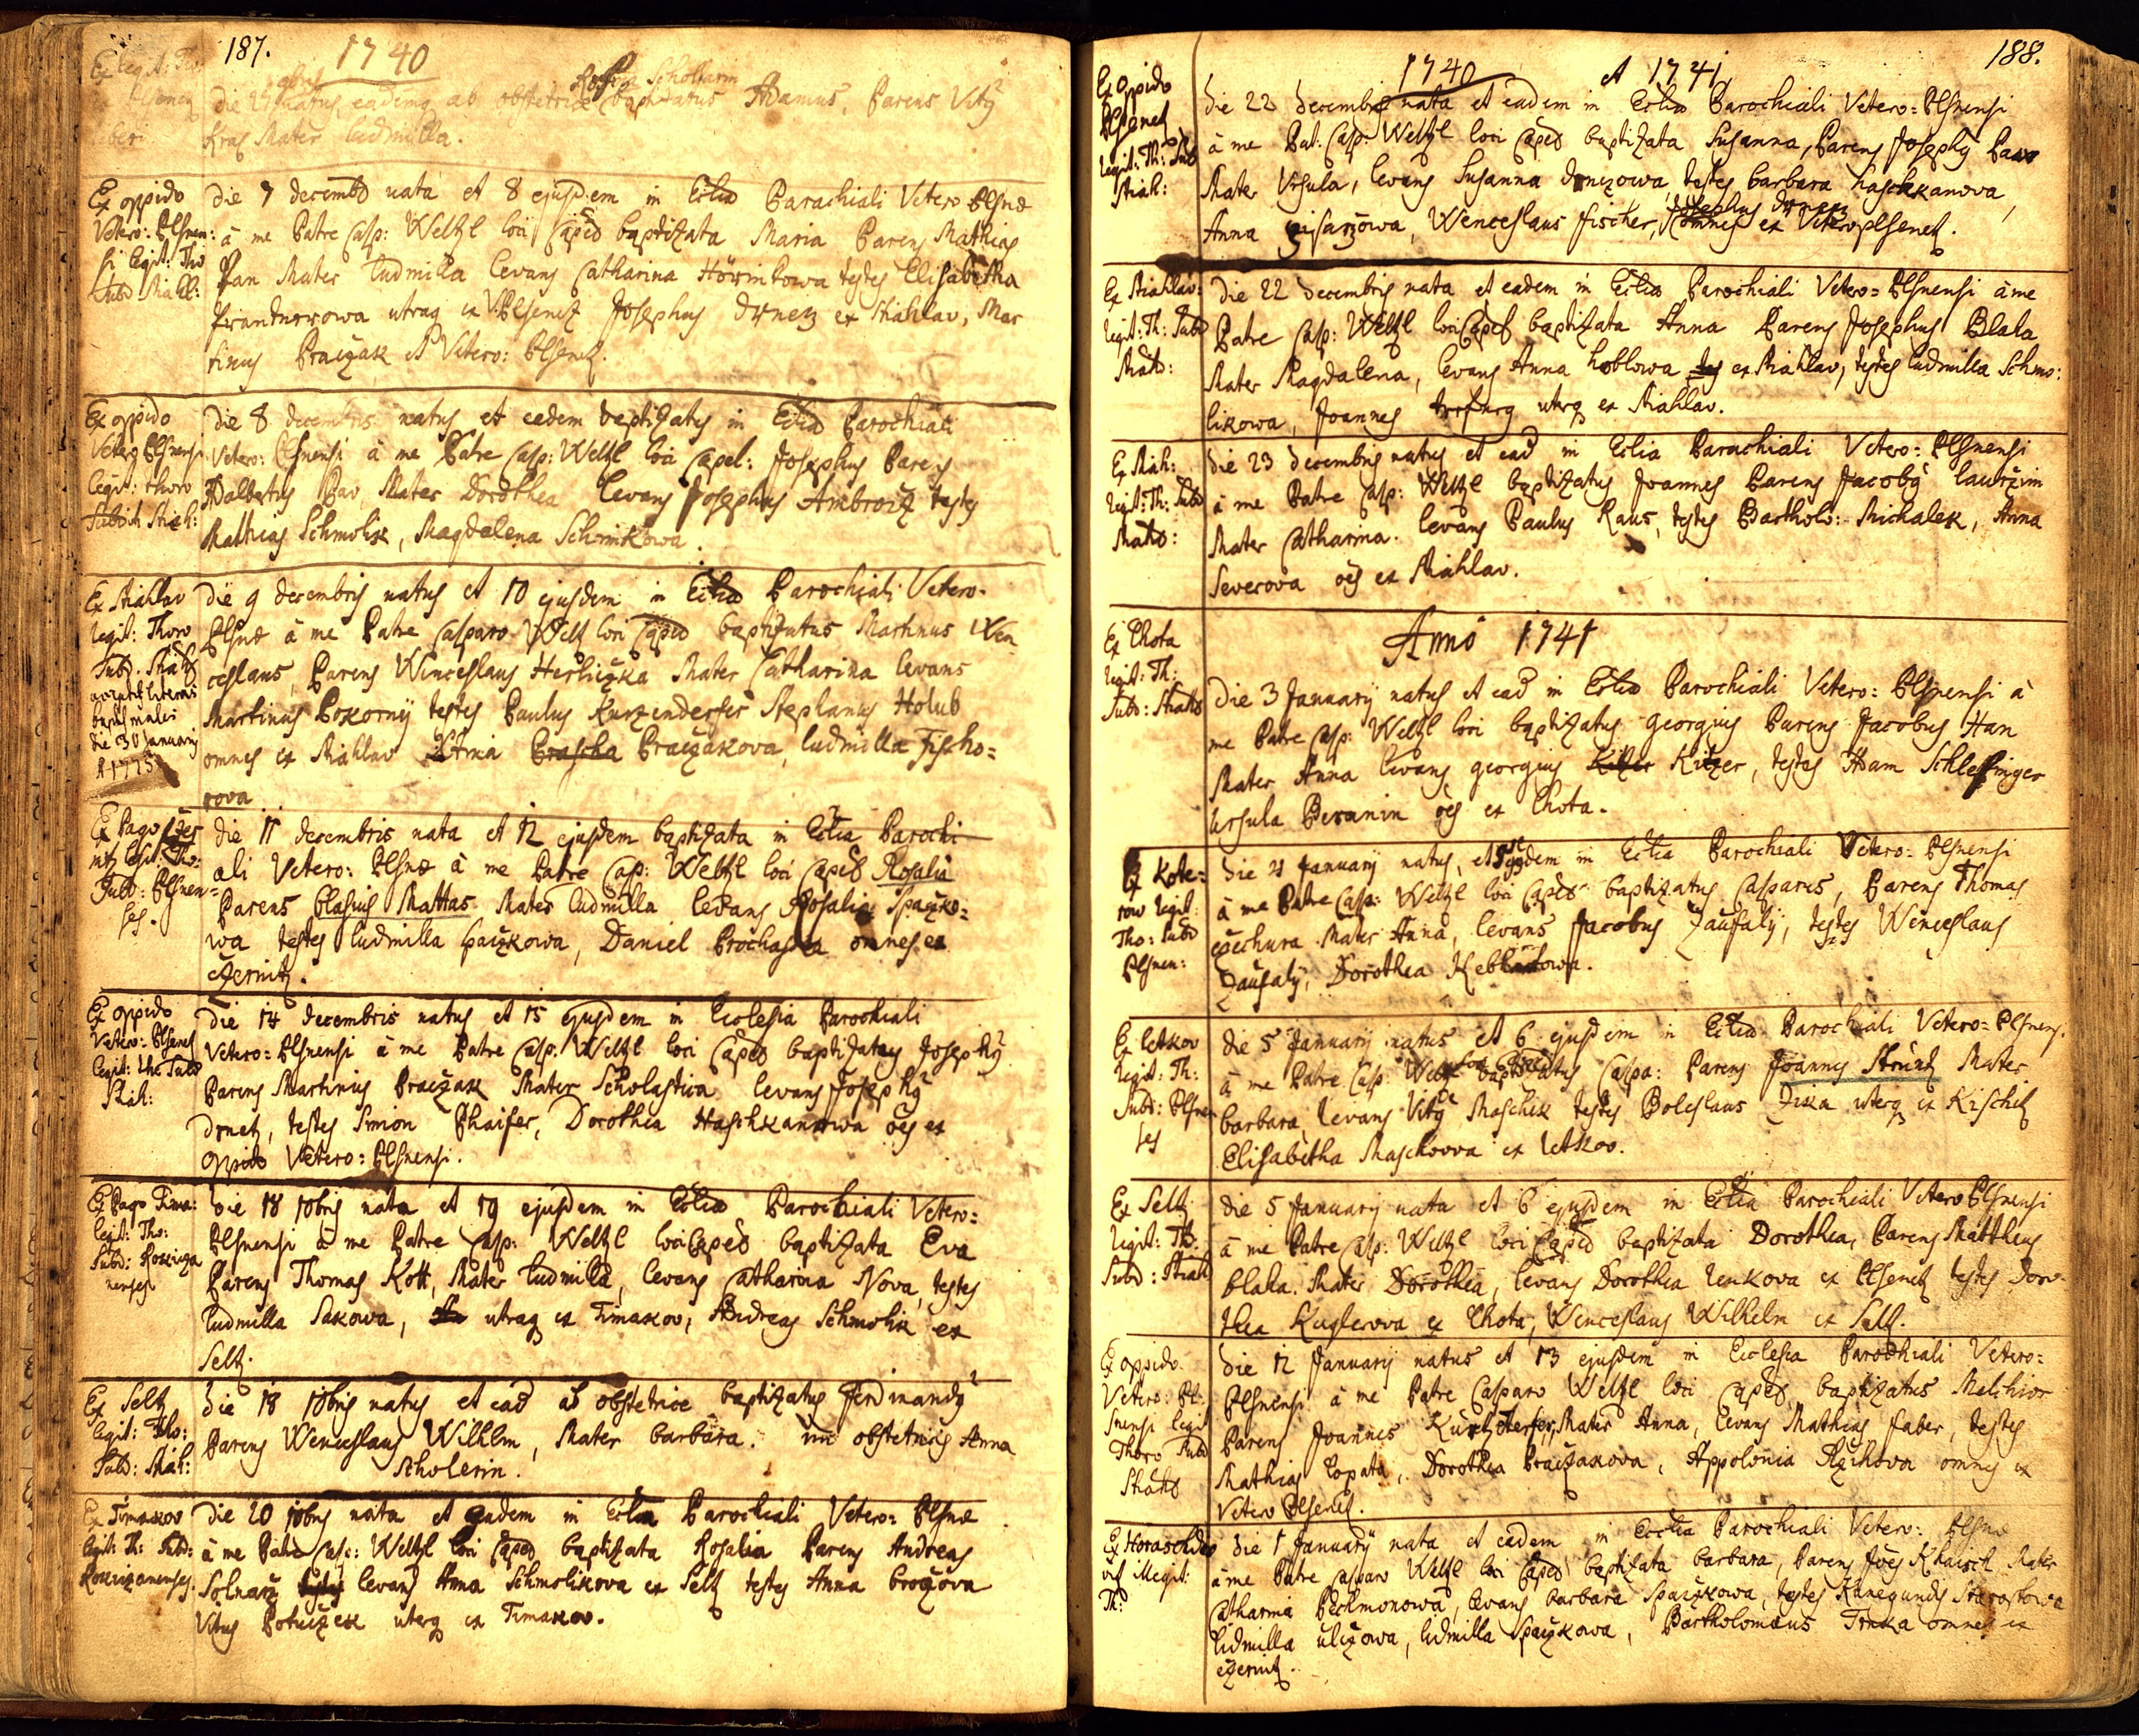 187.
1740
die natus, eadem ab obstetrice baptizatus Adamus, Parens Vitÿ
Kras Mater Ludmilla.
Ex oppido
Vetero: Plsnen:
si legit: Tho
Subd: Stiahl:
die 7 decembr nata et 8 ejusdem in Ecclia Parochiali Vetero Plsnæ
à me Patre Casp: Weltzl loci Caped baptizata Maria Parens Mathias
Pan Mater Ludmilla levans Catharina Hörinkowa testes Elisabetha
utraq ex V: Plsenetz Josephus Drnetz ex Stiahlav, Mar
tinus Braczak ex Vetero: Plsenetz.
Ex oppido
Vetero Plsnensi
legit: thoro
Subdit Stiah:
die 8 decembris natus et eadem baptizatus in Ecclia Parochiali
Vetero: Plsnensi à me Patre Casp: Weltzl loci Capel: Josephus Parens
Adalbertus Pav, Mater Dorothea levans Josephus Ambroz testes
Mathias Schmolik, Magdalena Schmikowa.
Ex Stiahlav
legit: Thoro
Subd. Stiahl
accepit literas
baptismales
die 30 Januarÿ
A 1775
die 9 decembris natus et 10 ejusdem in Ecclia Parochiali Vetero-
Plsnæ à me Patre Casparo Weltz loci Caped baptizatus Martinus Wen
ceslaus, Parens Winceslaus Herliczka Mater Catharina levans
Martinus Pokornÿ testes Paulus Kurzenderfer Stephanus Holub
omnes ex Stiahlav Anna Prascha Braczakova, Ludmilla Fischo=
rova
Ex Pago Czer
nitz legit: Tho:
Subd: Plsnen=
ses.
die 11 decembris nata et 12 ejusdem baptizata in Ecclia Parochi
ali Vetero: Plsnæ à me Patre Casp: Weltzl loci Caped Rosalia
Parens Blasius Mattas Mater Ludmilla levans Rosalia Spaczko=
wa testes Ludmilla Spaczkowa, Daniel Prochaska omnes ex
Czernitz.
Ex oppido
Vetero: Plsenetz
legit: tho Subd
Stiah:
die 14 decembris natus et 15 ejusdem in Ecclesia Parochiali
Vetero: Plsnensi à me Patre Casp: Weltzl loci Caped baptizatus Josephÿ
Parens Martinus Braczak Mater Scholastica levans Josephÿ
Drnetz, testes Simon Phaifer, Dorothea Haschkanowa oes ex
oppido Vetero: Plsnensi.
Ex Pago Tima:
legit: Tho:
Subd: Rokicza
nenses
die 18 10bris nata et 19 ejusdem in Ecclia Parochiali Vetero:
Plsnensi à me Patre Casp: Weltzl loci Caped baptizata Eva
Parens Thomas Kott, Mater Ludmilla, levans Catharina Nova, testes
Ludmilla Sakowa, utraq ex Timakov, Andreas Schmolik ex
Seltz.
Ex Seltz
legit: Tho:
Subd: Stiah:
die 18 10bris natus et ead ab obstetrice baptizatus Ferdinandÿ
Parens Wenceslaus Wilhlm, Mater barbara. obstetricis Anna
Scholerin.
Ex Timakov
legit: Th: Subd:
Rokiczanenses.
die 20 10bris nata et eadem in Ecclia Parochiali Vetero: Plsnæ
à me Patre Casp: Weltzl loci Caped baptizata Rosalia Parens Andreas
Solnarz testes levans Anna Schmolikova ex Seltz testes Anna brozova
Vitus Potuczek uterq ex Timakov.
188.
1740 et 1741
Ex Oppido
Plsenetz
legit: Th: Subd
Stiah:
die 22 decembris nata et eadem in Ecclia Parochiali Vetero: Plsnensi
à me Pat: Casp: Weltzl loci Caped baptizata Susanna, Parens Josephÿ Pav
Mater Vrsula, levans Susanna drnczowa, testes barbara haschkanova,
Anna pisarzowa, Wenceslaus fischer, Josephus Drnetz omnes ex Veteroplsenetz.
Ex Stiahlav:
legit: Th: Subd
Stiah:
die 22 decembris nata et eadem in Ecclia Parochiali Vetero= Plsnensi à me
Patre Casp: Weltzl loci Caped baptizata Anna Parens Josephus Blaha
Mater Magdalena, levans Anna hoblowa tes ex Stiahlav, testes Ludmilla Schmo:
likowa, Joannes uterq ex Stiahlav.
Ex Stiah:
legit: Th: Subd
Stiah:
die 23 decembris natus et ead in Eclia Parochiali Vetero: Plsnensi
à me Patre Casp: Weltzl baptizatus Joannes Parens Jacobÿ Lawrzin
Mater Catharina. levans Paulus Raus, testes Bartholo: Michalek, Anna
Severova oes ex Stiahlav.
Anno 1741
Ex Lhota
legit: Th:
Subd: Stiahl
die 3 Januarÿ natus et ead in Ecclia Parochiali Vetero: Plsnensi à
me Patre Casp: Weltzl loci baptizatus georgius Parens Jacobus Han
Mater Anna levans georgius Kitzer Kitzer, testes Adam Schlessinger
Ursula Beranin oes ex Lhota.
Ex Kote=
row legit:
Tho: Subd
Plsnen:
die 4 Januarÿ natus, et 5 ejusdem in Ecclia Parochiali Vetero: Plsnensi
à me Patre Casp: Weltzl loci Caped baptizatus Casparus, Parens Thomas
Czechura Mater Anna, levans Jacobus Zaufalÿ, testes Wenceslaus
Zaufalÿ, Dorothea
Ex Letkov
legit: Th:
Subd: Plsnen
ses
die 5 Januarÿ natus et 6 ejusdem in Ecclia Parochiali Vetero= Plsnens.
à me Patre Casp: Weltzl loci Caped baptizatus Caspa: Parens Joannes Struntz Mater
barbara, levans Vitÿ Maschek testes Boleslaus Zika uterq ex Kischitz
Elisabetha Maschkova ex Letkov.
Ex Seltz
legit: Th:
Subd: Stiahl
die 5 Januarÿ nata et 6 ejusdem in Ecclia Parochiali Vetero Plsnensi
à me Patre Casp: Weltzl loci Caped baptizata Dorothea, Parens Mattheus
blaha. Mater Dorothea, levans Dorothea Lenkova ex Plsenetz testes Doro
thea Kuglerova ex Lhota, Wenceslaus Wilhelm ex Seltz.
Ex oppido
Vetero: Pl:
snensi legit
Thoro Subd
Stiahl
die 12 Januarÿ natus et 13 ejusdem in Ecclesia Parochiali Vetero:
Plsnensi à me Patre Casparo Weltzl loci Caped baptizatus Melchior
Parens Joannes Kurtzderfer, Mater Anna, levans Mathias faber, testes
Mathias Lopata, Dorothea Braczakova, Appolonia Rzihova omnes ex
Vetero Plsenetz.
illegit:
Th:
die 1 Januarÿ nata et eadem in Ecclia Parochiali Vetero: Plsnæ
à me Patre Casparo Weltzl loci Caped baptizata barbara, Parens Joes Mater
Catharina Pechmonowa, levans barbara Spaczkowa, testes Kunegundis Starostowa
Ludmilla ulczowa, Ludmilla Spaczkowa, Bartholomæus Trnka omnes ex
Czernitz.